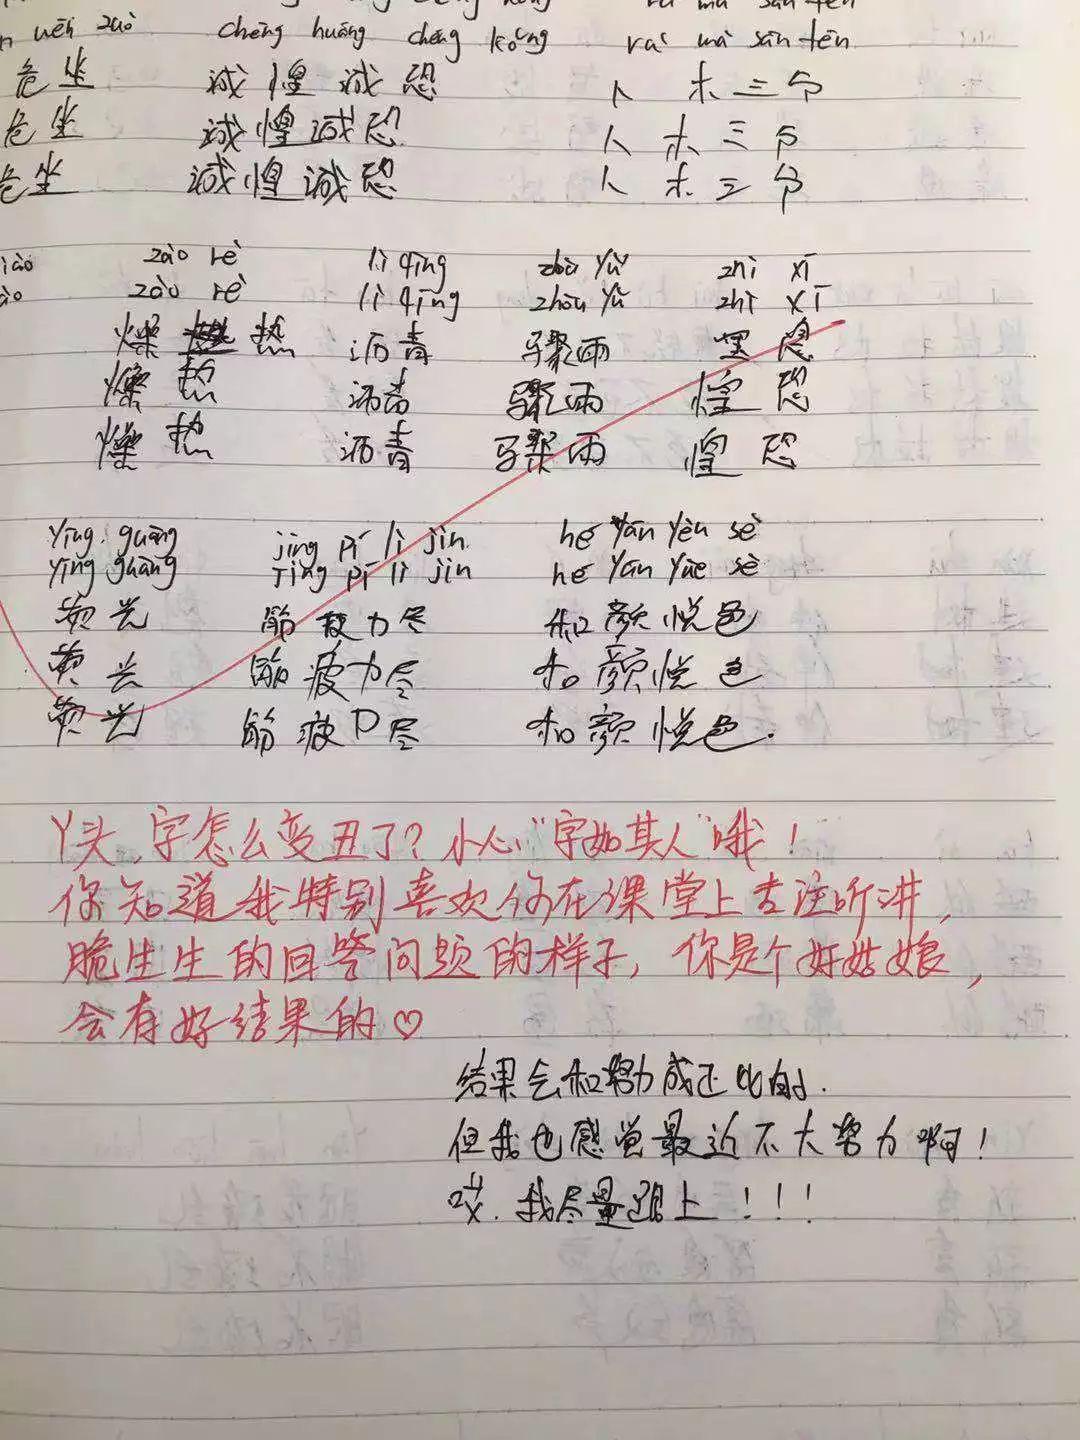 uēn zuò chéng huáng chéng kǒng rù mù sān fēn
危坐 诚惶诚恐 入木三分
危坐 诚惶诚恐 入木三分
危坐 诚惶诚恐 入木三分
zào rè lì qīng zhòu yǔ zhì xī
zào rè lì qīng zhòu yǔ zhì xī
燥热 沥青 骤雨
燥热 沥青 骤雨 惶恐
燥热 沥青 骤雨 惶恐
yíng guāng jīng pí lì jìn hé yán yuè sè
yíng guāng jīng pí lì jìn hé yán yuè sè
荧光 筋疲力尽 和颜悦色
荧光 筋疲力尽 和颜悦色
荧光 筋疲力尽 和颜悦色.
丫头,字怎么变丑了?小心"字如其人"哦!
你知道我特别喜欢你在课堂上专注听讲,
脆生生的回答问题的样子,你是个好姑娘,
会有好结果的♡
结果会和努力成正比的.
但我也感觉最近不大努力啊!
哎.我尽量跟上!!!